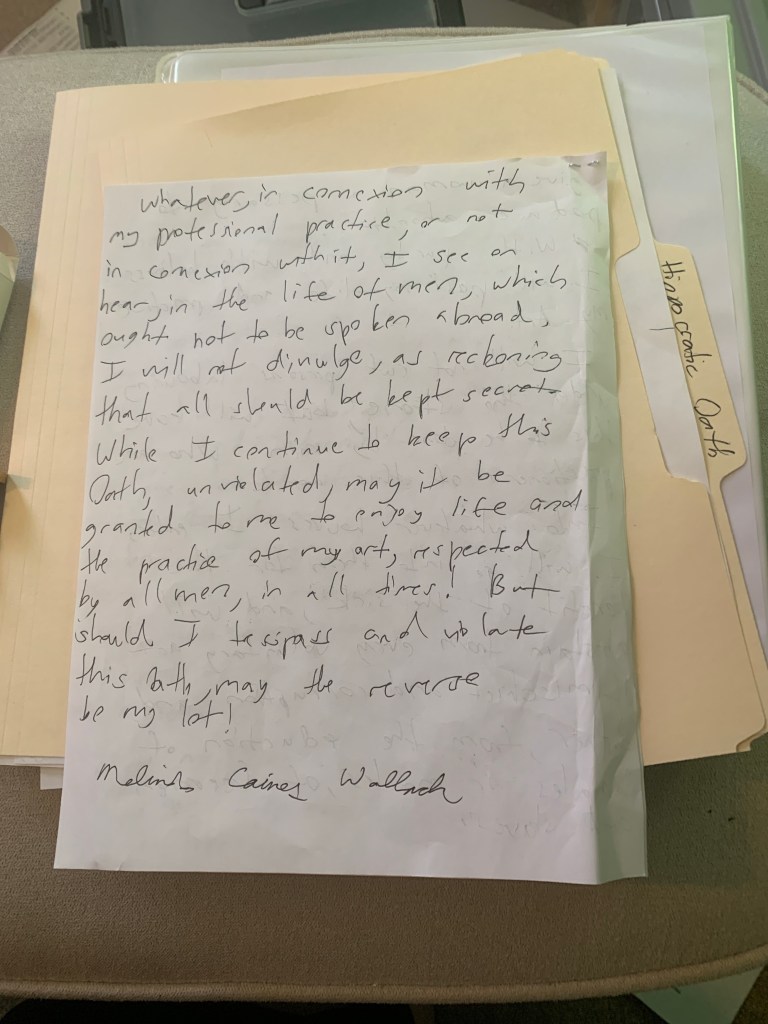 whatever, in connexion with
my professional practice, or not
in connexion with it, I see or
hear, in the life of men, which
ought not to be spoken abroad,
I will not divulge, as reckoning
that all should be kept secret.
While I continue to keep this
Oath, unviolated, may it be
granted to me to enjoy life and
the practice of my art, respected
by all men, in all times! But
should I tesspass and violate
this Oath, may the reverse
be my lot!
Melinda Caines Wallach
Hippocratic Oath